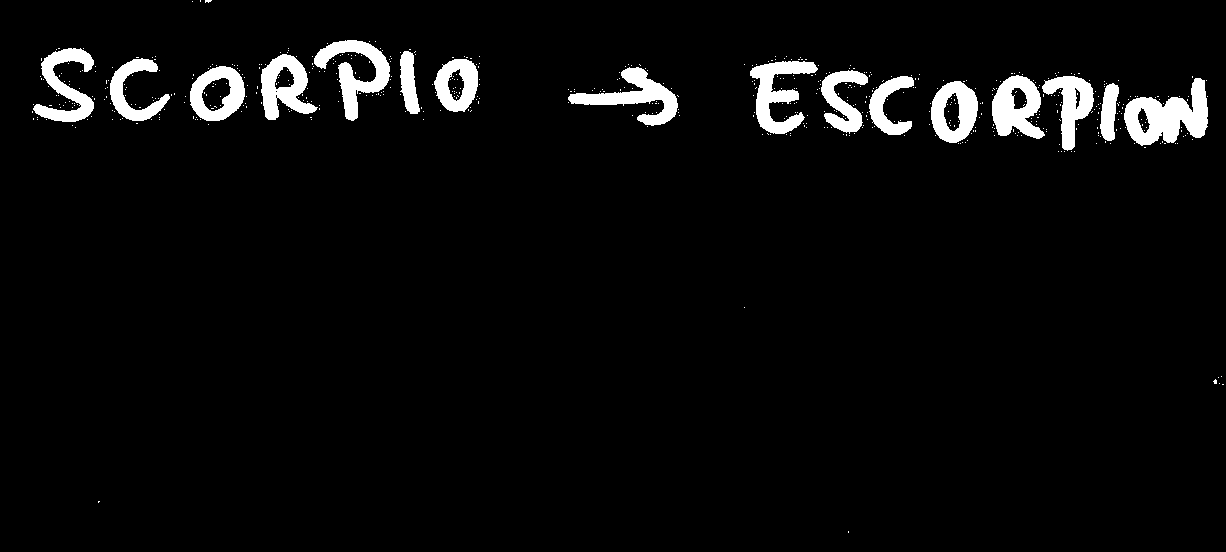 SCORPIO → ESCORPION